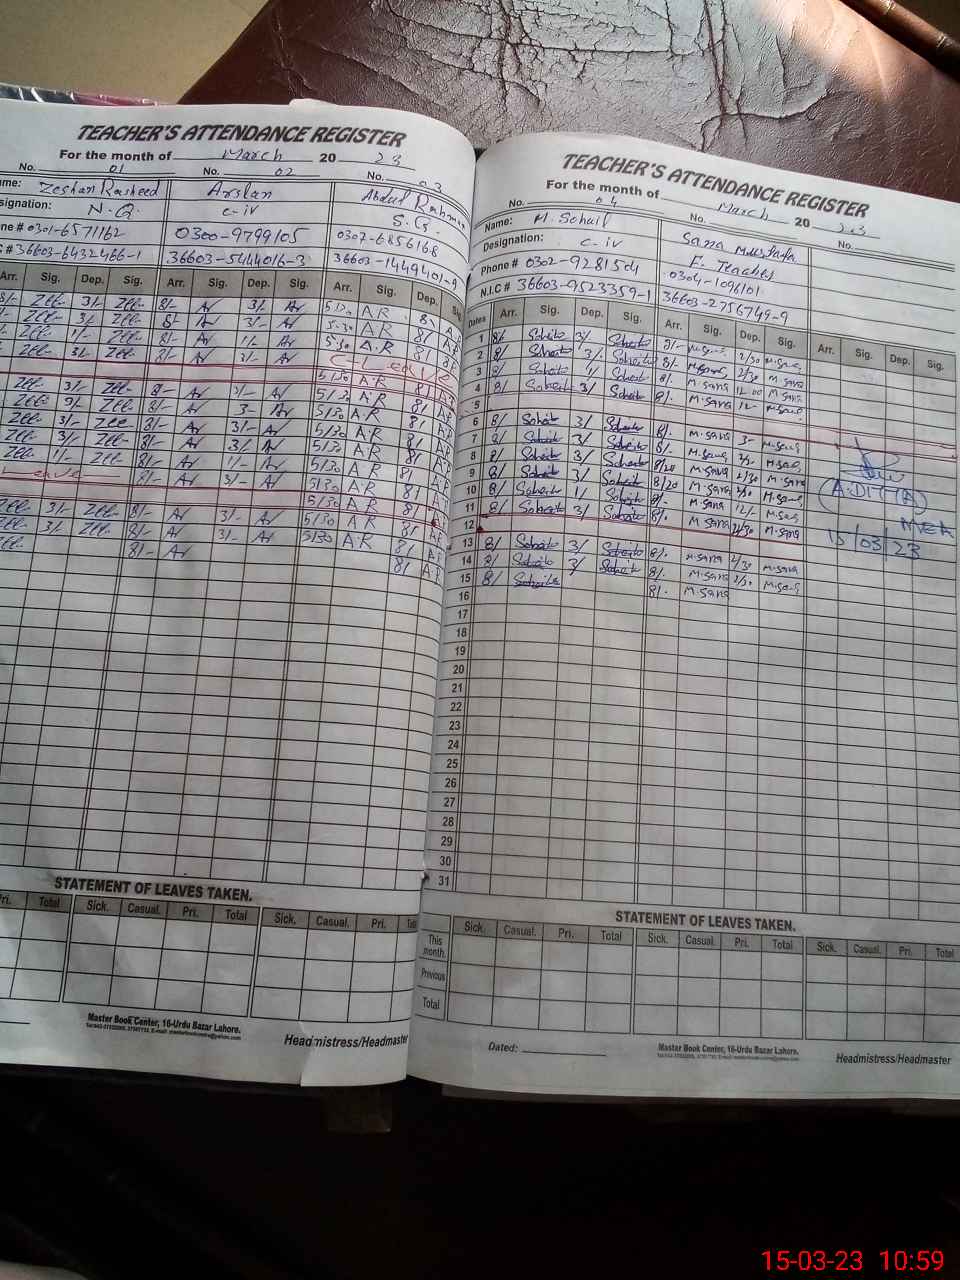 TEACHER'S ATTENDANCE REGISTER
For the month of March 20 23
No. 01 No. 02 No. 03
Name: Zeshan Rasheed Arslan Abdul Rahman
signation: N.Q. C-iv S.G.
ne # 0301-6571162 0300-9799105 0307-6856168
# 36603-6432466-1 36603-5444016-3 36603-1449401-9
Arr. Sig. Dep. Sig. Arr. Sig. Dep. Sig. Arr. Sig. Dep. Sig
8/- Zee- 3/- Zee- 8/- Ar 3/- Ar 5/30 AR 8/ AR
Zee- 3/- Zee- 8/- Ar 3/- Ar 5/30 AR 8/ AR
Zee- 1/- Zee- 8/- Ar 1/- Ar 5/30 A.R 8/ AR
Zee- 3/- Zee- 8/- Ar 3/- Ar C-Leave
Zee- 3/- Zee- 8/- Ar 3/- Ar 5/30 A.R 8/ AR
Zee- 3/- Zee 8/- Ar 3- Ar 5/30 AR 8/ AR
Zee- 3/- Zee- 8/- Ar 3/- Ar 5/30 A.R 8/ AR
Zee- 3/- Zee- 8/- Ar 3/- Ar 5/30 A.R
Zee- 1/- Zee- 8/- Ar 1/- Ar 5/30 A.R 8/ AR
Leave 8/- Ar 3/- Ar 5/30 A.R 8/ AR
Zee- 3/- Zee- 8/- Ar 3/- Ar 5/30 A.R 8/ AR
Zee- 3/- Zee- 8/- Ar 3/- Ar 5/30 A.R 8/ AR
Zee- 8/- Ar 8/ AR
STATEMENT OF LEAVES TAKEN.
Pri. Total Sick. Casual. Pri. Total Sick. Casual. Pri. Total
Master Book Center, 16-Urdu Bazar Lahore.
Headmistress/Headmaster
TEACHER'S ATTENDANCE REGISTER
For the month of March 20 23
No. 04 No. No.
Name: M. Sohail Sana Mustafa
Designation: C-iv E. Teacher
Phone # 0302-9281504 0304-1096101
N.I.C # 36603-9523359-1 36603-2756749-9
Dates Arr. Sig. Dep. Sig. Arr. Sig. Dep. Sig. Arr. Sig. Dep. Sig.
1 8/ Sohail 3/ Sohail 8/- M.Sana 2/30 M.Sana
2 8/ Sohail 3/ Sohail 8/- M.Sana 2/30 M.Sana
3 8/ Sohail 1/ Sohail 8/- M.Sana 12-00 M.Sana
4 8/ Sohail 3/ Sohail 8/- M.Sana 12- M.Sana
5
6 8/ Sohail 3/ Sohail 8/- M.Sana 3- M.Sana
7 8/ Sohail 3/ Sohail 8/- M.Sana M.Sana
8 8/ Sohail 3/ Sohail 8/20 M.Sana 2/30 M.Sana
9 8/ Sohail 3/ Sohail 8/20 M.Sana M.Sana
10 8/ Sohail 1/ Sohail 8/- M.Sana 12/- M.Sana
11 8/ Sohail 3/ Sohail 8/- M.Sana 2/30 M.Sana
12
13 8/ Sohail 3/ Sohail 8/- M.Sana 2/30 M.Sana
14 8/ Sohail 3/ Sohail 8/- M.Sana 2/30 M.Sana
15 8/ Sohail 8/- M.Sana
16
17
18
19
20
21
22
23
24
25
26
27
28
29
30
31
(ADITTA)
MEA
15/03/23
STATEMENT OF LEAVES TAKEN.
Sick. Casual. Pri. Total Sick. Casual. Pri. Total Sick. Casual. Pri. Total
This month.
Previous
Total
Dated:
Master Book Center, 16-Urdu Bazar Lahore.
Headmistress/Headmaster
15-03-23 10:59